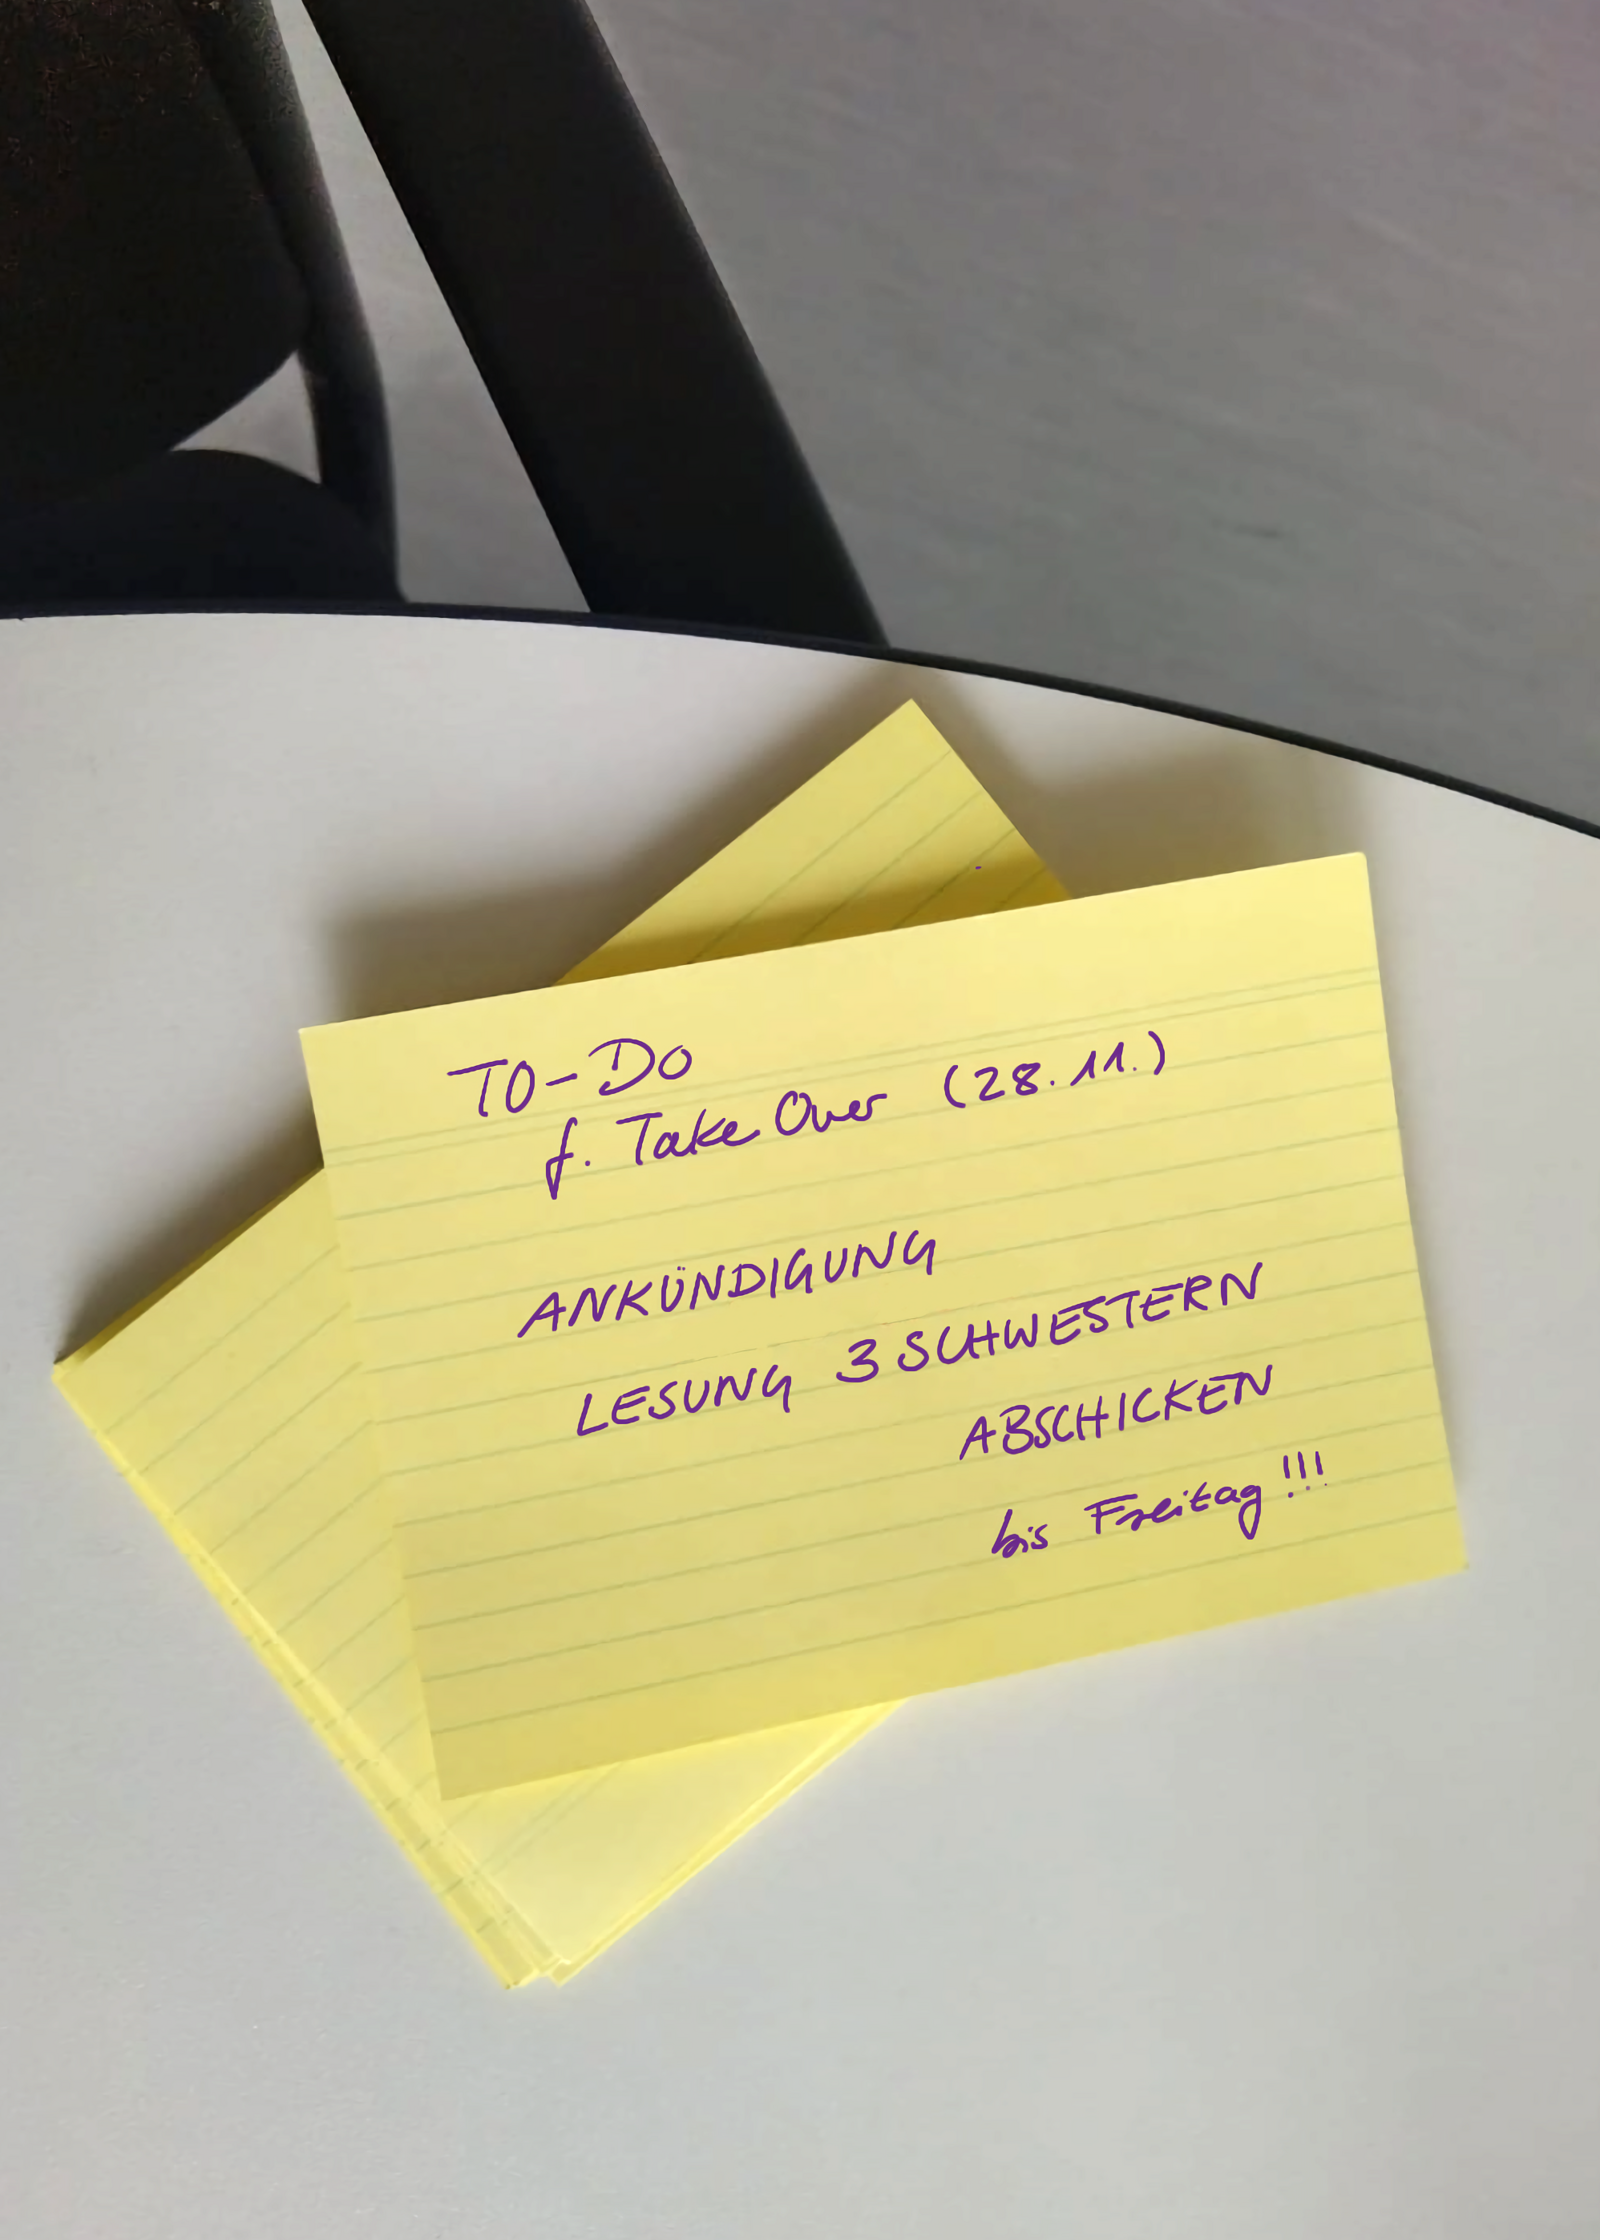 TO-DO
f. Take Over (28.11.)
ANKÜNDIGUNG
LESUNG 3 SCHWESTERN
ABSCHICKEN
bis Freitag!!!